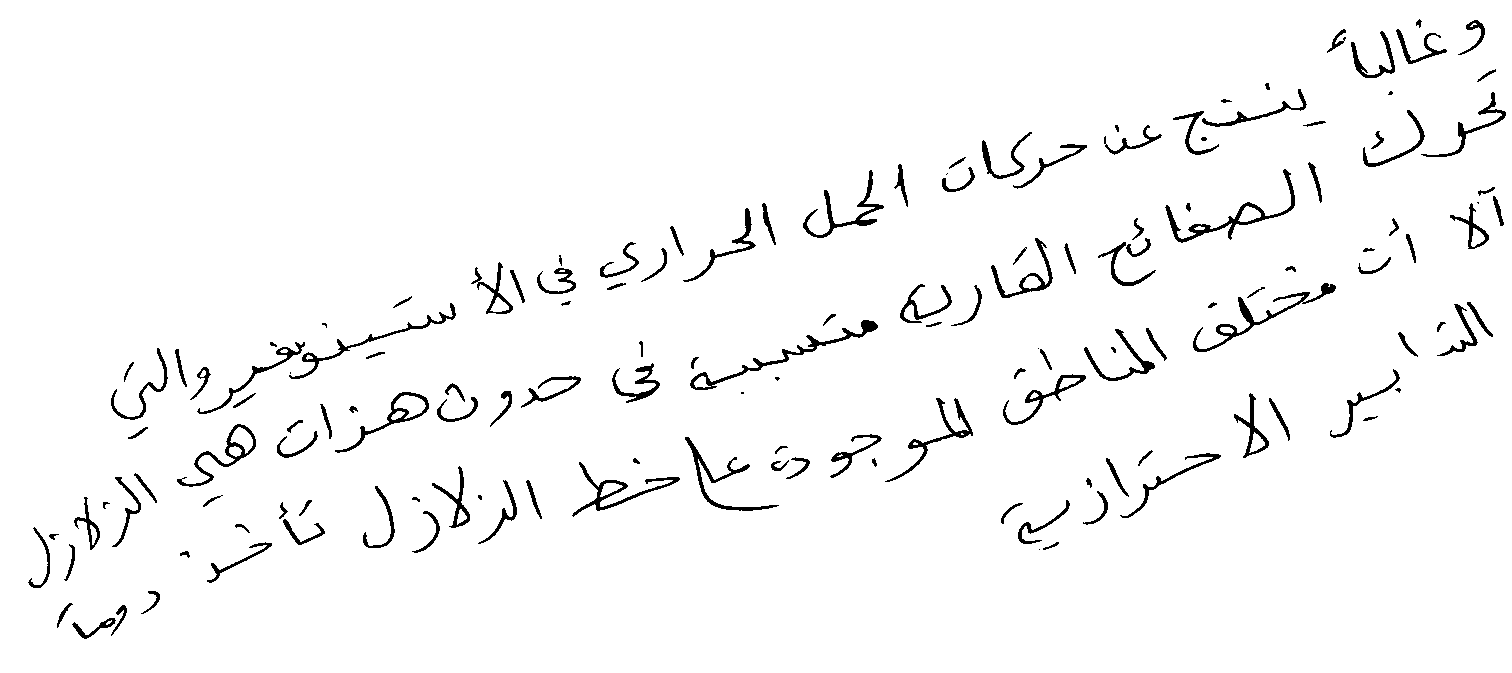 وغالباً ينتج عن حركات الحمل الحراري في الأستينوسفير والتي
تحرك الصفائح القارية متسببة في حدوث هزات هي الزلازل
ألا أن مختلف المناطق الموجودة على خط الزلازل تأخذ دوماً
التدابير الاحترازية